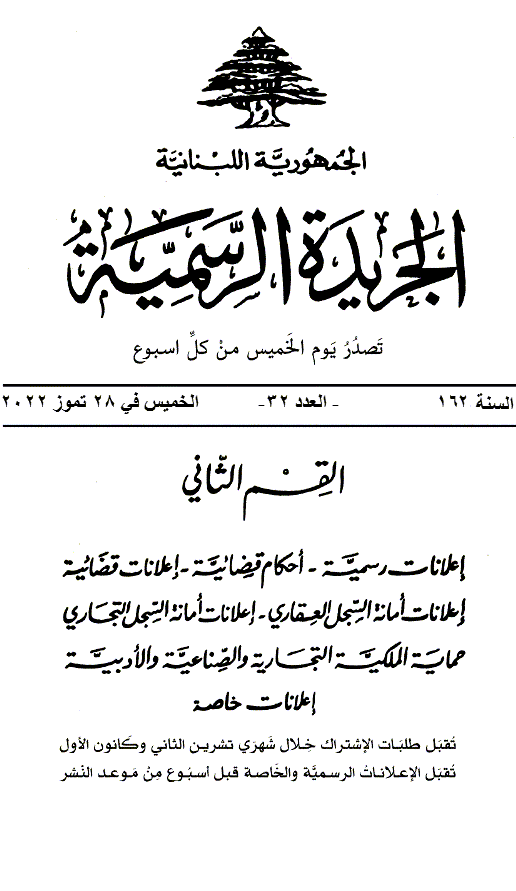 الجمهوريَّة اللبنانيَّة
الجريدة الرسميَّة
تَصدُرُ يَوم الخَميس منْ كلِّ اسبوع
السنة ١٦٢ - العدد ٣٢- الخميس في ٢٨ تموز ٢٠٢٢
القِسْم الثَّاني
إعلانات رسميَّة - أحكام قضائيَّة - إعلانات قضائية
إعلانات أمانة السِّجل العقاري - إعلانات أمانة السِّجل التجاري
حماية الملكيَّة التجارية والصِّناعيَّة والأدبيَّة
إعلانات خاصة
تُقبَل طلبَات الإشتراك خِلال شَهرَي تشرين الثاني وكَانون الأول
تُقبَل الإعلاناتُ الرسميَّة والخَاصة قبل أسبُوع مِنْ مَوعد النشر